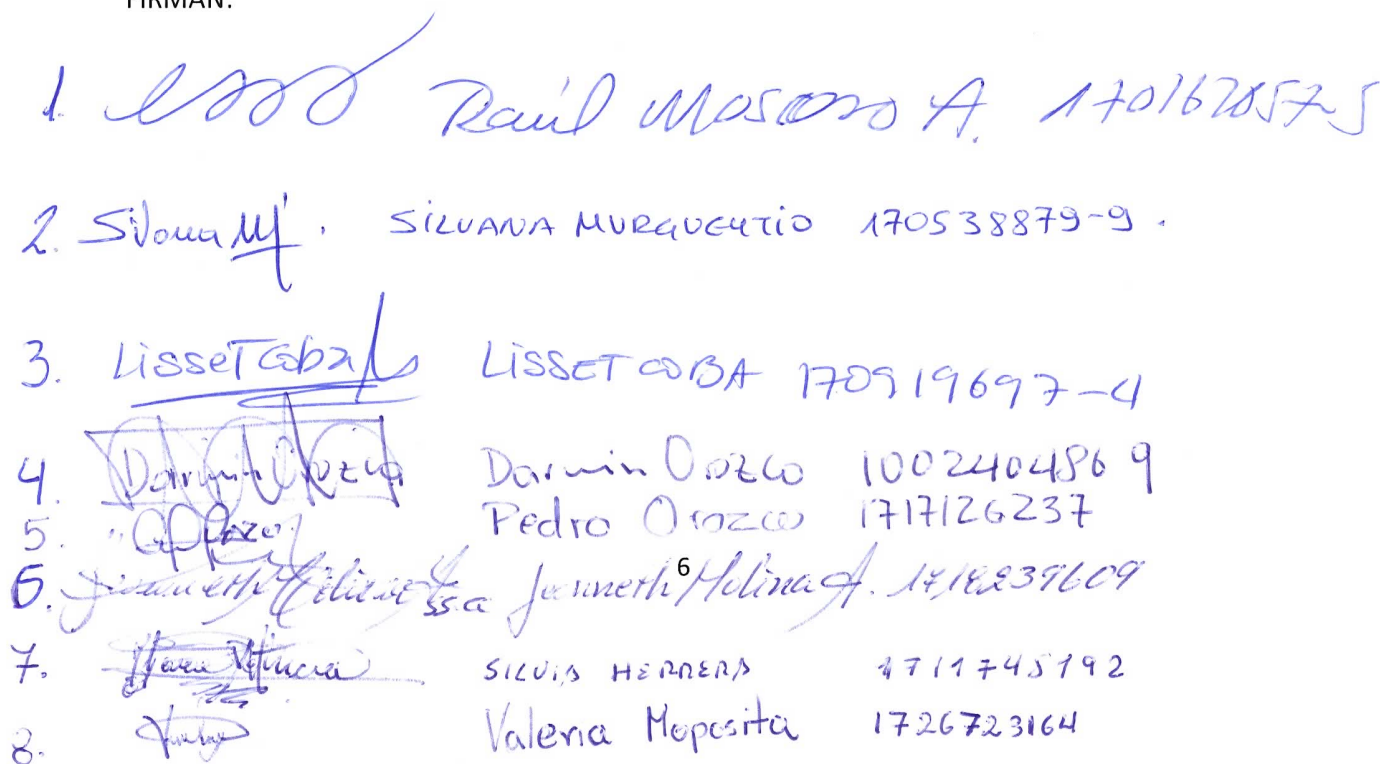 FIRMAN:
1. Raúl Moscoso A. 1701628575
2. Silvana M. SILVANA MURGUEYTIO 170538879-9.
3. Lisset Coba LISSET COBA 170919697-4
4. Darwin Orozco Darwin Orozco 1002404869
5. Orozco Pedro Orozco 1717126237
6. Jeanneth Molina Jeanneth Molina A.
6
7. SILVIA HERRERA 1711745192
8. Valeria Moposita 1726723164